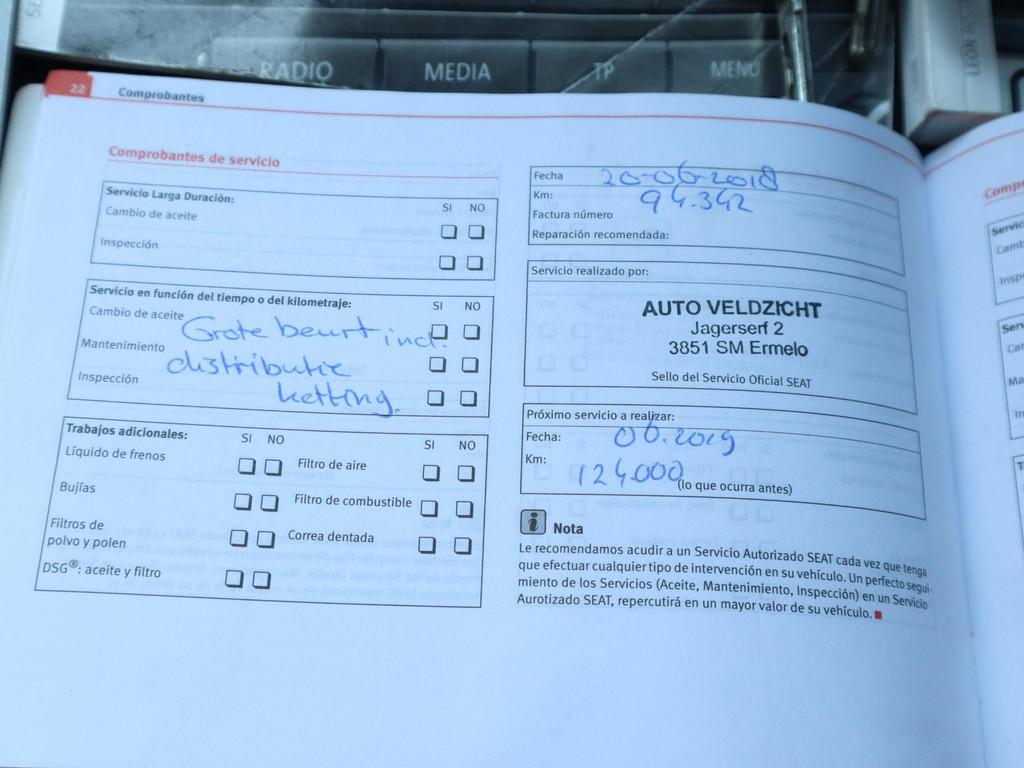 RADIO
MEDIA
TP
MENU
22
Comprobantes
Comprobantes de servicio
Servicio Larga Duración:
SI NO
Cambio de aceite
Inspección
Servicio en función del tiempo o del kilometraje:
SI NO
Cambio de aceite
Grote beurt incl.
Mantenimiento
distributie
Inspección
ketting.
Trabajos adicionales:
SI NO
SI NO
Líquido de frenos
Filtro de aire
Bujías
Filtro de combustible
Filtros de
polvo y polen
Correa dentada
DSG®: aceite y filtro
Fecha 20-06-2018
Km: 94.342
Factura número
Reparación recomendada:
Servicio realizado por:
AUTO VELDZICHT
Jagerserf 2
3851 SM Ermelo
Sello del Servicio Oficial SEAT
Próximo servicio a realizar:
Fecha: 06.2019
Km: 124.000 (lo que ocurra antes)
i Nota
Le recomendamos acudir a un Servicio Autorizado SEAT cada vez que tenga
que efectuar cualquier tipo de intervención en su vehículo. Un perfecto segui-
miento de los Servicios (Aceite, Mantenimiento, Inspección) en un Servicio
Aurotizado SEAT, repercutirá en un mayor valor de su vehículo.
LEON